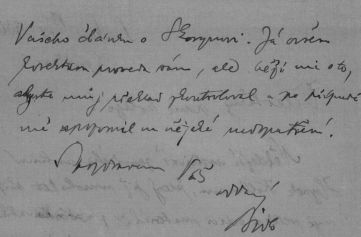 Vašeho článku o Skorynovi. Já ovšem
korekturu provedu sám, ale běží mi o to,
abyste můj překlad zkontroloval a po případě
mě upozornil na nějaké nedopatření.
S pozdravem Váš
oddaný